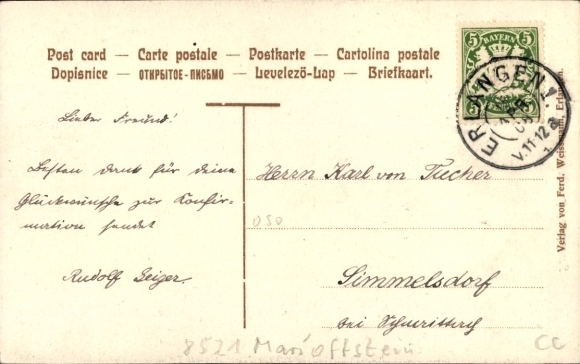 Post card — Carte postale — Postkarte — Cartolina postale
Dopisnice — ОТКРЫТОЕ-ПИСЬМО — Levelező-Lap — Briefkaart.
5 BAYERN 5
ERLANGEN 1.
V.11-12
Lieber Freund!
Besten Dank für deine
Glückwünsche zur Konfir-
mation sendet
Rudolf Geiger.
Herrn Karl von Tucher
Simmelsdorf
bei
Verlag von Ferd. Weissmann, Erlangen.
8521 Marloffstein
CC